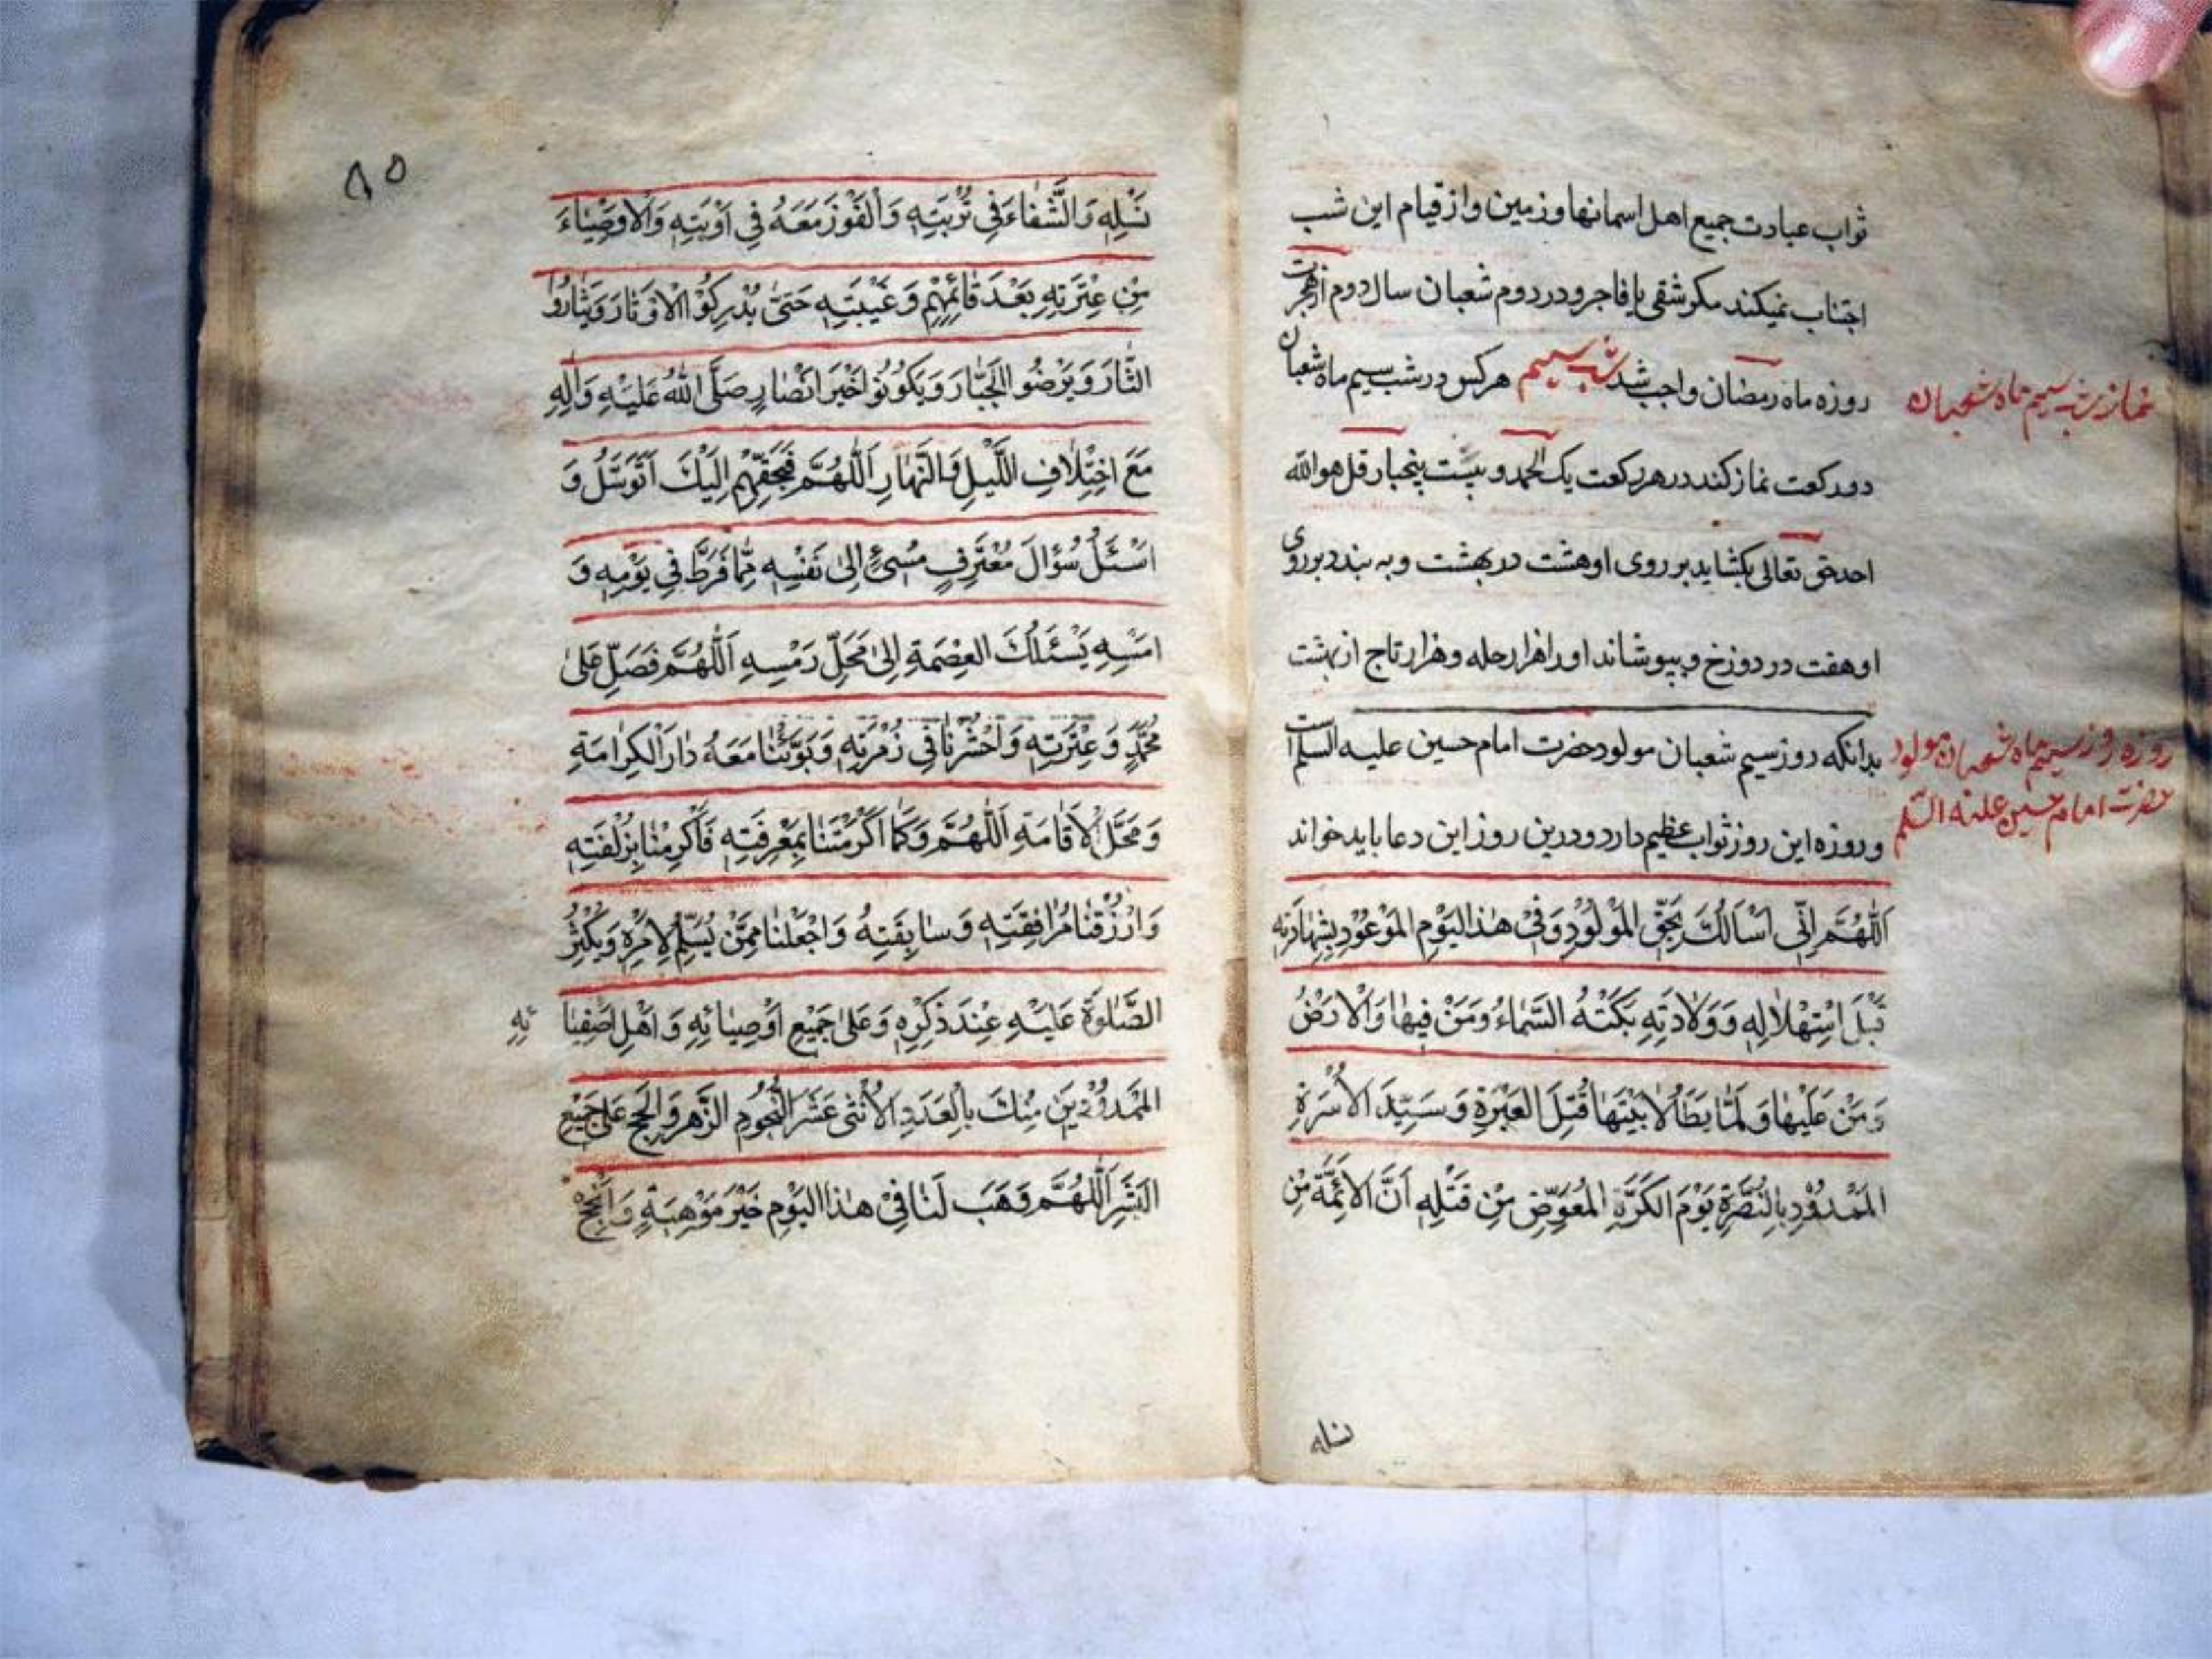 ثواب عبادت جمیع اهل اسمانها و زمین و از قیام این شب
اجتناب نمیکند مکر شقی یا فاجر و در دوم شعبان سال دوم از هجرت
روزه ماه رمضان واجب شد شب سیم هرکس در شب سیم ماه شعبان
نماز شب سیم ماه شعبان
دو رکعت نماز کند در هر رکعت یک الحمد و بیست پنجبار قل هو الله
احد حق تعالی بکشاید بر روی او هشت در بهشت و به بندد بر روی
او هفت در دوزخ و بپوشاند او را هزار حله و هزار تاج از بهشت
بدانکه روز سیم شعبان مولود حضرت امام حسین علیه السلم است
روزه روز سیم ماه شعبان مولود
حضرت امام حسین علیه السلم
و روزه این روز ثواب عظیم دارد و درین روز این دعا باید خواند
اَللّٰهُمَّ اِنّی اَسْاَلُكَ بِحَقِّ المَوْلُوْدِ وَفِیْ هٰذَا الیَوْمِ المَوْعُوْدِ بِشَهٰادَتِهِ
قَبْلَ اسْتِهْلاٰلِهِ وَوَلاٰدَتِهِ بَكَتْهُ السَّمٰاءُ وَمَنْ فِیهٰا وَالْاَرْضُ
وَمَنْ عَلَیْهٰا وَلَمّٰا یَطَأْ لاٰبَیْتَهٰا قُتِلَ العَبْرَةِ وَسَیِّدَ الاُسْرَةِ
المَمْدُوْدِ بِالنُّصْرَةِ یَوْمَ الكَرَّةِ المُعَوِّضِ مِنْ قَتْلِهِ اَنَّ الاَئِمَّةَ مِنْ
نسله
٨٥
نَسْلِهِ وَالشِّفٰاءَ فِی تُرْبَتِهِ وَالْفَوْزَ مَعَهُ فِی اَوْبَتِهِ وَالاَوصِیٰاءَ
مِنْ عِتْرَتِهِ بَعْدَ قٰائِمِهِمْ وَغَیْبَتِهِ حَتّیٰ یُدْرِكُوْا الْاَوْتٰارَ وَیَثٰارُوْا
الثّٰارَ وَیَرْضُوا الجَبّٰارَ وَیَكُوْنُوْا خَیْرَ اَنْصٰارٍ صَلَّی اللّٰهُ عَلَیْهِ وَاٰلِهِ
مَعَ اخْتِلاٰفِ اللَّیْلِ وَالنَّهٰارِ اَللّٰهُمَّ فَبِحَقِّهِمْ اِلَیْكَ اَتَوَسَّلُ وَ
اَسْئَلُ سُؤٰالَ مُعْتَرِفٍ مُسِیْءٍ اِلیٰ نَفْسِهِ مِمّٰا فَرَّطَ فِی یَوْمِهِ وَ
اَمْسِهِ یَسْئَلُكَ العِصْمَةِ اِلیٰ مَحَلِّ رَمْسِهِ اَللّٰهُمَّ فَصَلِّ عَلیٰ
مُحَمَّدٍ وَعِتْرَتِهِ وَاحْشُرْنٰا فِی زُمْرَتِهِ وَبَوِّئْنٰا مَعَهُ دٰارَ الْكَرٰامَةِ
وَمَحَلَّ الْاِقٰامَةِ اَللّٰهُمَّ وَكَمٰا اَكْرَمْتَنٰا بِمَعْرِفَتِهِ فَاَكْرِمْنٰا بِزُلْفَتِهِ
وَارْزُقْنٰا مُرٰافَقَتِهِ وَسٰابِقَتَهُ وَاجْعَلْنٰا مِمَّنْ یُسَلِّمُ لِاَمْرِهِ وَیُكْثِرُ
الصَّلٰوةَ عَلَیْهِ عِنْدَ ذِكْرِهِ وَعَلیٰ جَمِیْعِ اَوْصِیٰائِهِ وَاَهْلِ اَصْفِیٰائِهِ
المَمْدُوْدِیْنَ مِنْكَ بِالْعَدَدِ الاثْنیٰ عَشَرَ النُّجُوْمِ الزَّهَرِ وَالحُجَجِ عَلیٰ جَمِیْعِ
البَشَرِ اَللّٰهُمَّ وَهَبَ لَنٰا فِیْ هٰذَا الیَوْمِ خَیْرَ مَوْهِبَةٍ وَاَنْجِحْ